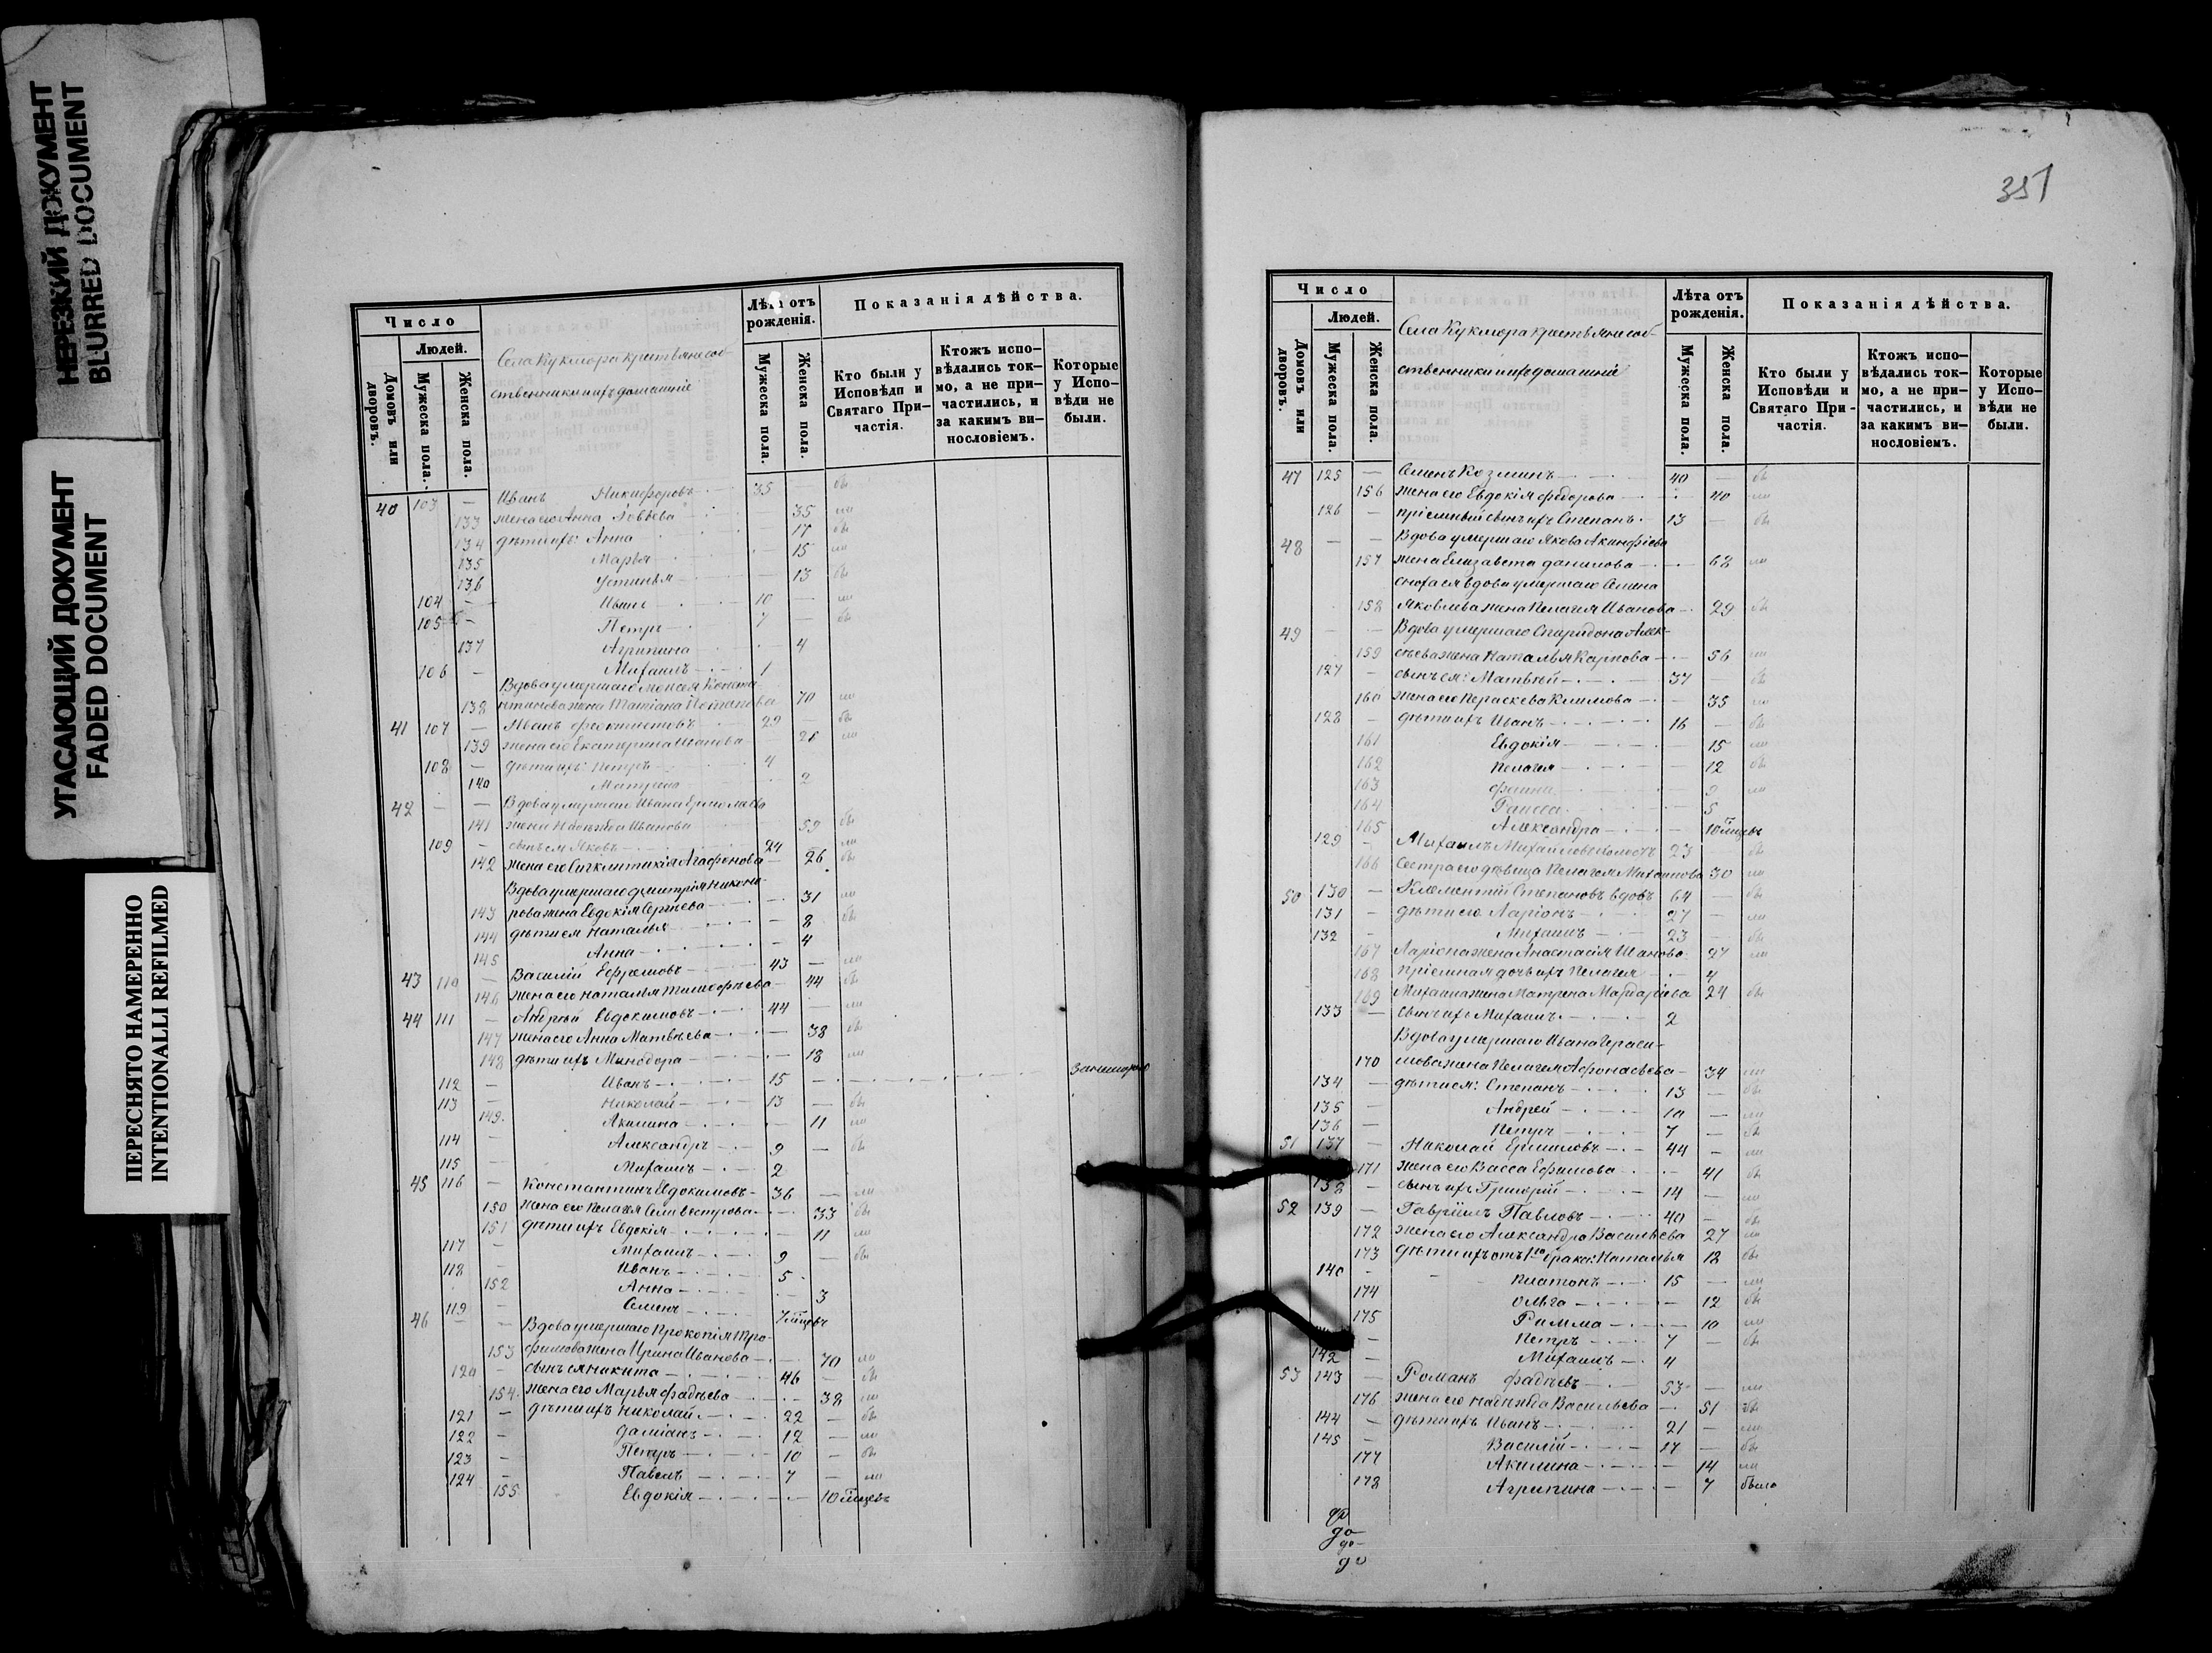 НЕРЕЗКИЙ ДОКУМЕНТ
BLURRED DOCUMENT
УГАСАЮЩИЙ ДОКУМЕНТ
FADED DOCUMENT
ПЕРЕСНЯТО НАМЕРЕННО
INTENTIONALLI REFILMED
Число
Людей.
Домовъ или дворовъ.
Мужеска пола.
Женска пола.
Села Кукмора крестьяне соб-
ственники и ихъ домашніе
Лѣта отъ рожденія.
Мужеска пола.
Женска пола.
Показанія дѣйства.
Кто были у Исповѣди и Святаго При-частія.
Ктожъ испо-вѣдались ток-мо, а не при-частились, и за какимъ ви-нословіемъ.
Которые у Испо-вѣди не были.
40 103 — Иванъ Никифоровъ 35 бы
133 жена его Анна 35 ли
134 дѣти ихъ: Анна 17 бы
135 Марья 15 ли
136 Устинья 13 бы
104 — Иванъ 10 — ли
105 — Петръ 7 — бы
137 Агрипина 4
106 — Михаилъ 1
Вдова умершаго Моисея Конста-
138 нтинова жена Татіана Потапова 70 ли
41 107 — Иванъ Феоктистовъ 29 — бы
139 жена его Екатерина Иванова 26 ли
108 — дѣти ихъ: Петръ 4
140 Матрена 2
42 — — Вдова умершаго Ивана Ермолаева
141 жена Надежда Иванова 59 бы
109 — сынъ ея Яковъ 24 — ли
142 жена его Синклитикія Агафонова 26 бы
Вдова умершаго Дмитрія Никано-
143 рова жена Евдокія Сергѣева 31 ли
144 дѣти ея Наталья 8 бы
145 Анна 4
43 110 — Василій Ефремовъ 43 — ли
146 жена его Наталья Тимофѣева 44 бы
44 111 — Андрей Евдокимовъ 44 — ли
147 жена его Анна Матвѣева 38 бы
148 дѣти ихъ Минодора 18 ли
112 — Иванъ 15 —
113 — Николай 13 — бы
149 Акилина 11 ли
114 — Александръ 9 — бы
115 — Михаилъ 2
45 116 — Константинъ Евдокимовъ 36 — ли
150 жена его Пелагея Селивестрова 33 бы
151 дѣти ихъ Евдокія 11 ли
117 — Михаилъ 9 — бы
118 — Иванъ 5
152 Анна 3
119 — Семенъ 7 мцевъ
46 — — Вдова умершаго Прокопія Тро-
153 фимова жена Ирина Иванова 70 ли
120 — сынъ ея Никита 46 — бы
154 жена его Марья Фадѣева 38 ли
121 — дѣти ихъ Николай 22 — бы
122 — Даміанъ 12 — ли
123 — Петръ 10 — бы
124 — Павелъ 7 — ли
155 Евдокія 10 мцевъ
351
Число
Людей.
Домовъ или дворовъ.
Мужеска пола.
Женска пола.
Села Кукмора крестьяне соб-
ственники и ихъ домашніе
Лѣта отъ рожденія.
Мужеска пола.
Женска пола.
Показанія дѣйства.
Кто были у Исповѣди и Святаго При-частія.
Ктожъ испо-вѣдались ток-мо, а не при-частились, и за какимъ ви-нословіемъ.
Которые у Испо-вѣди не были.
47 125 — Семенъ Козминъ 40 — бы
156 жена его Евдокія Федорова 40 ли
126 — пріемный сынъ ихъ Степанъ 13 — бы
48 — — Вдова умершаго Якова Акинфіева
157 жена Елизавета Данилова 68 ли
сноха ея вдова умершаго Семена
158 Яковлева жена Пелагея Иванова 29 бы
49 — — Вдова умершаго Спиридона Алек-
159 сѣева жена Наталья Карпова 56 ли
127 — сынъ ея: Матвѣй 37 — бы
160 жена его Параскева Климова 35 ли
128 — дѣти ихъ Иванъ 16 — бы
161 Евдокія 15 ли
162 Пелагея 12 бы
163 Фаина 9 ли
164 Раиса 5
165 Александра 10 мцевъ
129 — Михаилъ Михаиловъ холостъ 23 — бы
166 Сестра его дѣвица Пелагея Михаилова 30 ли
50 130 — Климентій Степановъ вдовъ 64 — бы
131 — дѣти его Ларіонъ 27 — ли
132 — Михаилъ 23 — бы
167 Ларіона жена Анастасія Иванова 27 ли
168 пріемная дочь ихъ Пелагея 4
169 Михаила жена Матрена Мардаріева 24 бы
133 — сынъ ихъ Михаилъ 2
Вдова умершаго Ивана Гераси-
170 мова жена Пелагея Афонасьева 34 ли
134 — дѣти ея: Степанъ 13 — бы
135 — Андрей 10 — ли
136 — Петръ 7 — бы
51 137 — Николай Ермиловъ 44 — ли
171 жена его Васса Ефимова 41 бы
138 — сынъ ихъ Григорій 14 — ли
52 139 — Гавріилъ Павловъ 40 — бы
172 жена его Александра Васильева 27 ли
173 дѣти ихъ отъ 1го брака: Наталья 18 бы
140 — Платонъ 15 — ли
174 Ольга 12 бы
175 Римма 10 ли
— Петръ 7 — бы
142 — Михаилъ 4
53 143 — Романъ Фадѣевъ 53 — ли
176 жена его Надежда Васильева 51 бы
144 — дѣти ихъ Иванъ 21 — ли
145 — Василій 17 — бы
177 Акилина 14 ли
178 Агрипина 7 были
до
до
до